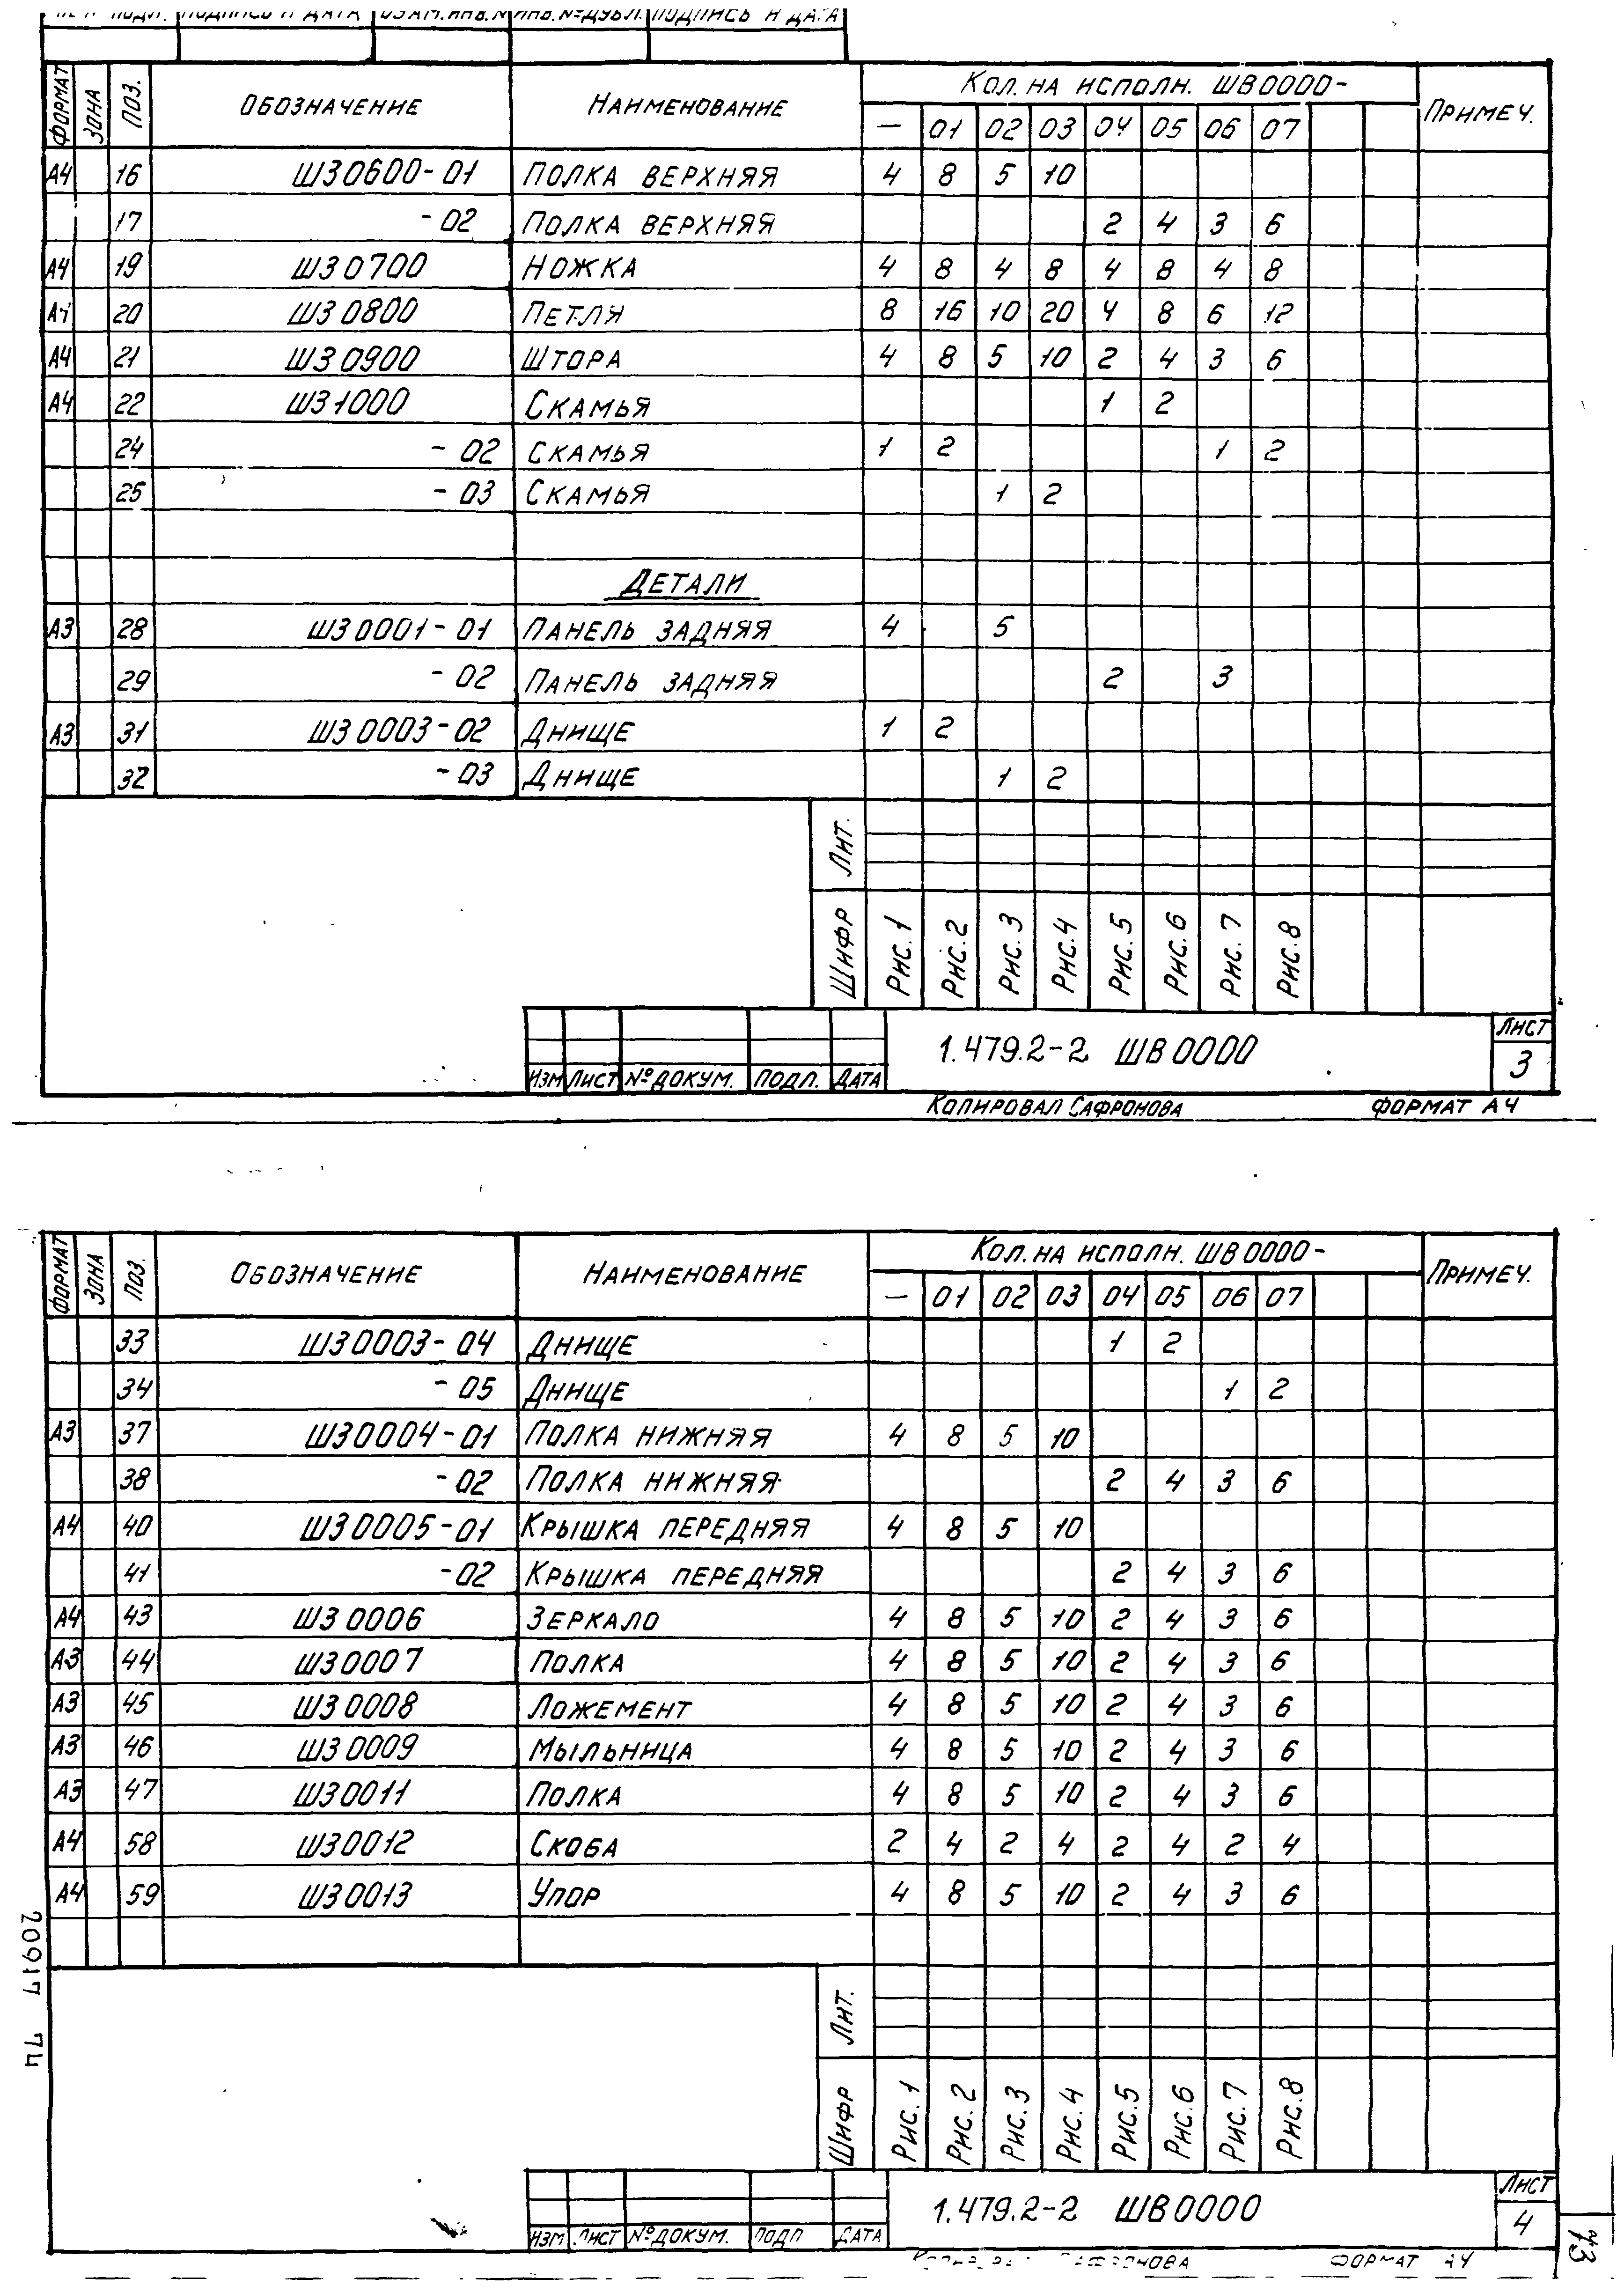 ПОДПИСЬ И ДАТА ВЗАМ.ИНВ.№ ИНВ.№ДУБЛ. ПОДПИСЬ И ДАТА
ФОРМАТ ЗОНА ПОЗ. ОБОЗНАЧЕНИЕ НАИМЕНОВАНИЕ КОЛ. НА ИСПОЛН. ШВ0000- ПРИМЕЧ.
— 01 02 03 04 05 06 07
А4 16 ШЗ0600-01 ПОЛКА ВЕРХНЯЯ 4 8 5 10
17 -02 ПОЛКА ВЕРХНЯЯ 2 4 3 6
А4 19 ШЗ0700 НОЖКА 4 8 4 8 4 8 4 8
А4 20 ШЗ0800 ПЕТЛЯ 8 16 10 20 4 8 6 12
А4 21 ШЗ0900 ШТОРА 4 8 5 10 2 4 3 6
А4 22 ШЗ1000 СКАМЬЯ 1 2
24 -02 СКАМЬЯ 1 2 1 2
25 -03 СКАМЬЯ 1 2
ДЕТАЛИ
А3 28 ШЗ0001-01 ПАНЕЛЬ ЗАДНЯЯ 4 5
29 -02 ПАНЕЛЬ ЗАДНЯЯ 2 3
А3 31 ШЗ0003-02 ДНИЩЕ 1 2
32 -03 ДНИЩЕ 1 2
ЛИТ.
ШИФР РИС.1 РИС.2 РИС.3 РИС.4 РИС.5 РИС.6 РИС.7 РИС.8
1.479.2-2 ШВ0000 ЛИСТ
3
ИЗМ ЛИСТ №ДОКУМ. ПОДП. ДАТА
КОПИРОВАЛ САФРОНОВА ФОРМАТ А4
ФОРМАТ ЗОНА ПОЗ. ОБОЗНАЧЕНИЕ НАИМЕНОВАНИЕ КОЛ. НА ИСПОЛН. ШВ0000- ПРИМЕЧ.
— 01 02 03 04 05 06 07
33 ШЗ0003-04 ДНИЩЕ 1 2
34 -05 ДНИЩЕ 1 2
А3 37 ШЗ0004-01 ПОЛКА НИЖНЯЯ 4 8 5 10
38 -02 ПОЛКА НИЖНЯЯ 2 4 3 6
А4 40 ШЗ0005-01 КРЫШКА ПЕРЕДНЯЯ 4 8 5 10
41 -02 КРЫШКА ПЕРЕДНЯЯ 2 4 3 6
А4 43 ШЗ0006 ЗЕРКАЛО 4 8 5 10 2 4 3 6
А3 44 ШЗ0007 ПОЛКА 4 8 5 10 2 4 3 6
А3 45 ШЗ0008 ЛОЖЕМЕНТ 4 8 5 10 2 4 3 6
А3 46 ШЗ0009 МЫЛЬНИЦА 4 8 5 10 2 4 3 6
А3 47 ШЗ0011 ПОЛКА 4 8 5 10 2 4 3 6
А4 58 ШЗ0012 СКОБА 2 4 2 4 2 4 2 4
А4 59 ШЗ0013 УПОР 4 8 5 10 2 4 3 6
ЛИТ.
ШИФР РИС.1 РИС.2 РИС.3 РИС.4 РИС.5 РИС.6 РИС.7 РИС.8
1.479.2-2 ШВ0000 ЛИСТ
4
ИЗМ ЛИСТ №ДОКУМ. ПОДП ДАТА
ФОРМАТ А4
20917 74
73